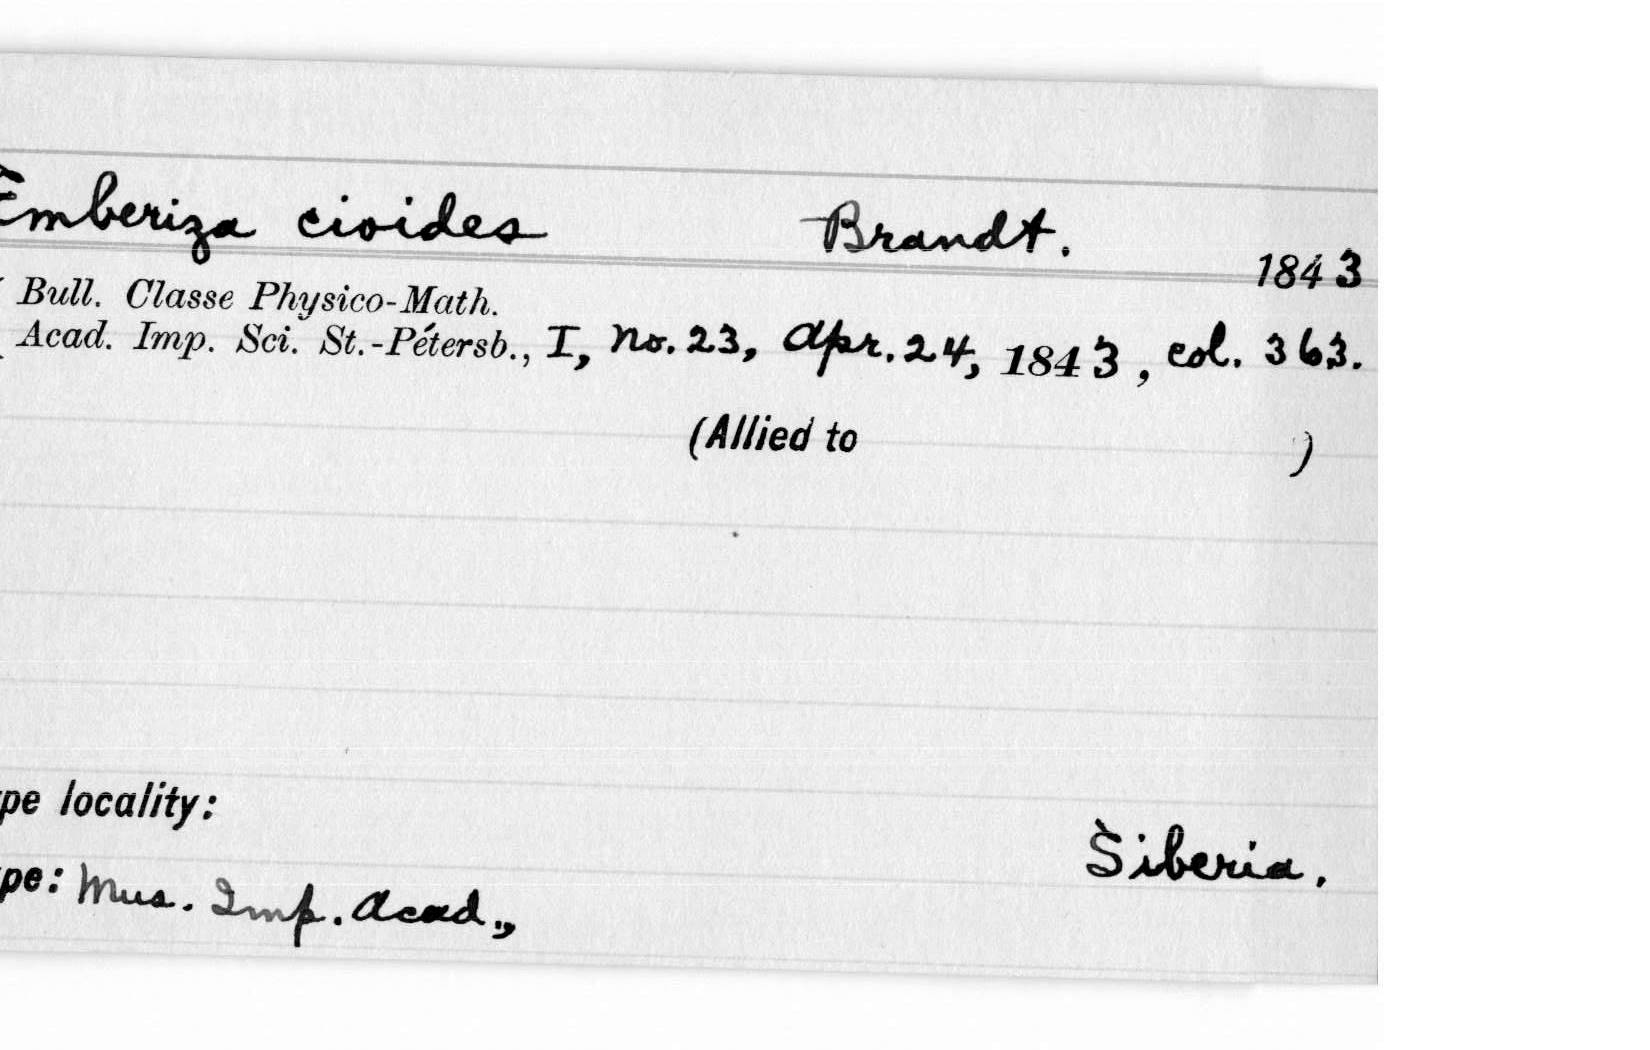 Emberiza cioides Brandt. 1843
Bull. Classe Physico-Math.
Acad. Imp. Sci. St.-Pétersb., I, no. 23, Apr. 24, 1843, col. 363.
(Allied to )
pe locality:
Siberia.
pe: Mus. Imp. Acad.,